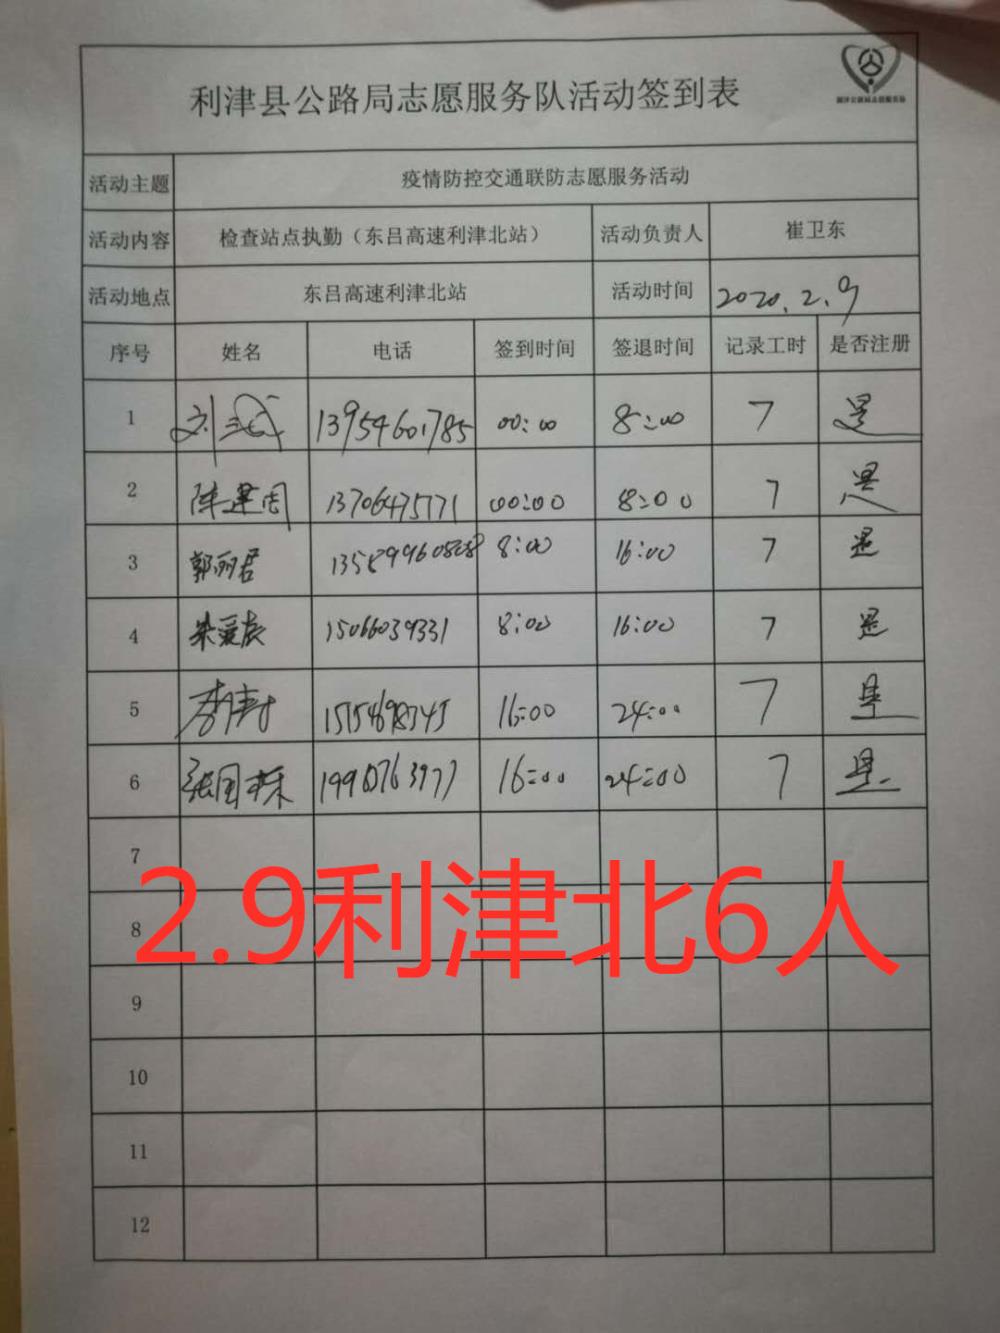 利津县公路局志愿服务队活动签到表
活动主题 疫情防控交通联防志愿服务活动
活动内容 检查站点执勤（东吕高速利津北站） 活动负责人 崔卫东
活动地点 东吕高速利津北站 活动时间 2020.2.9
序号 姓名 电话 签到时间 签退时间 记录工时 是否注册
1 刘 13954601785 00:00 8:00 7 是
2 陈建国 13706475771 00:00 8:00 7 是
3 郭丽君 8:00 16:00 7 是
4 15066039331 8:00 16:00 7 是
5 李 16:00 24:00 7 是
6 张国栋 16:00 24:00 7 是
7
2.9利津北6人
8
9
10
11
12